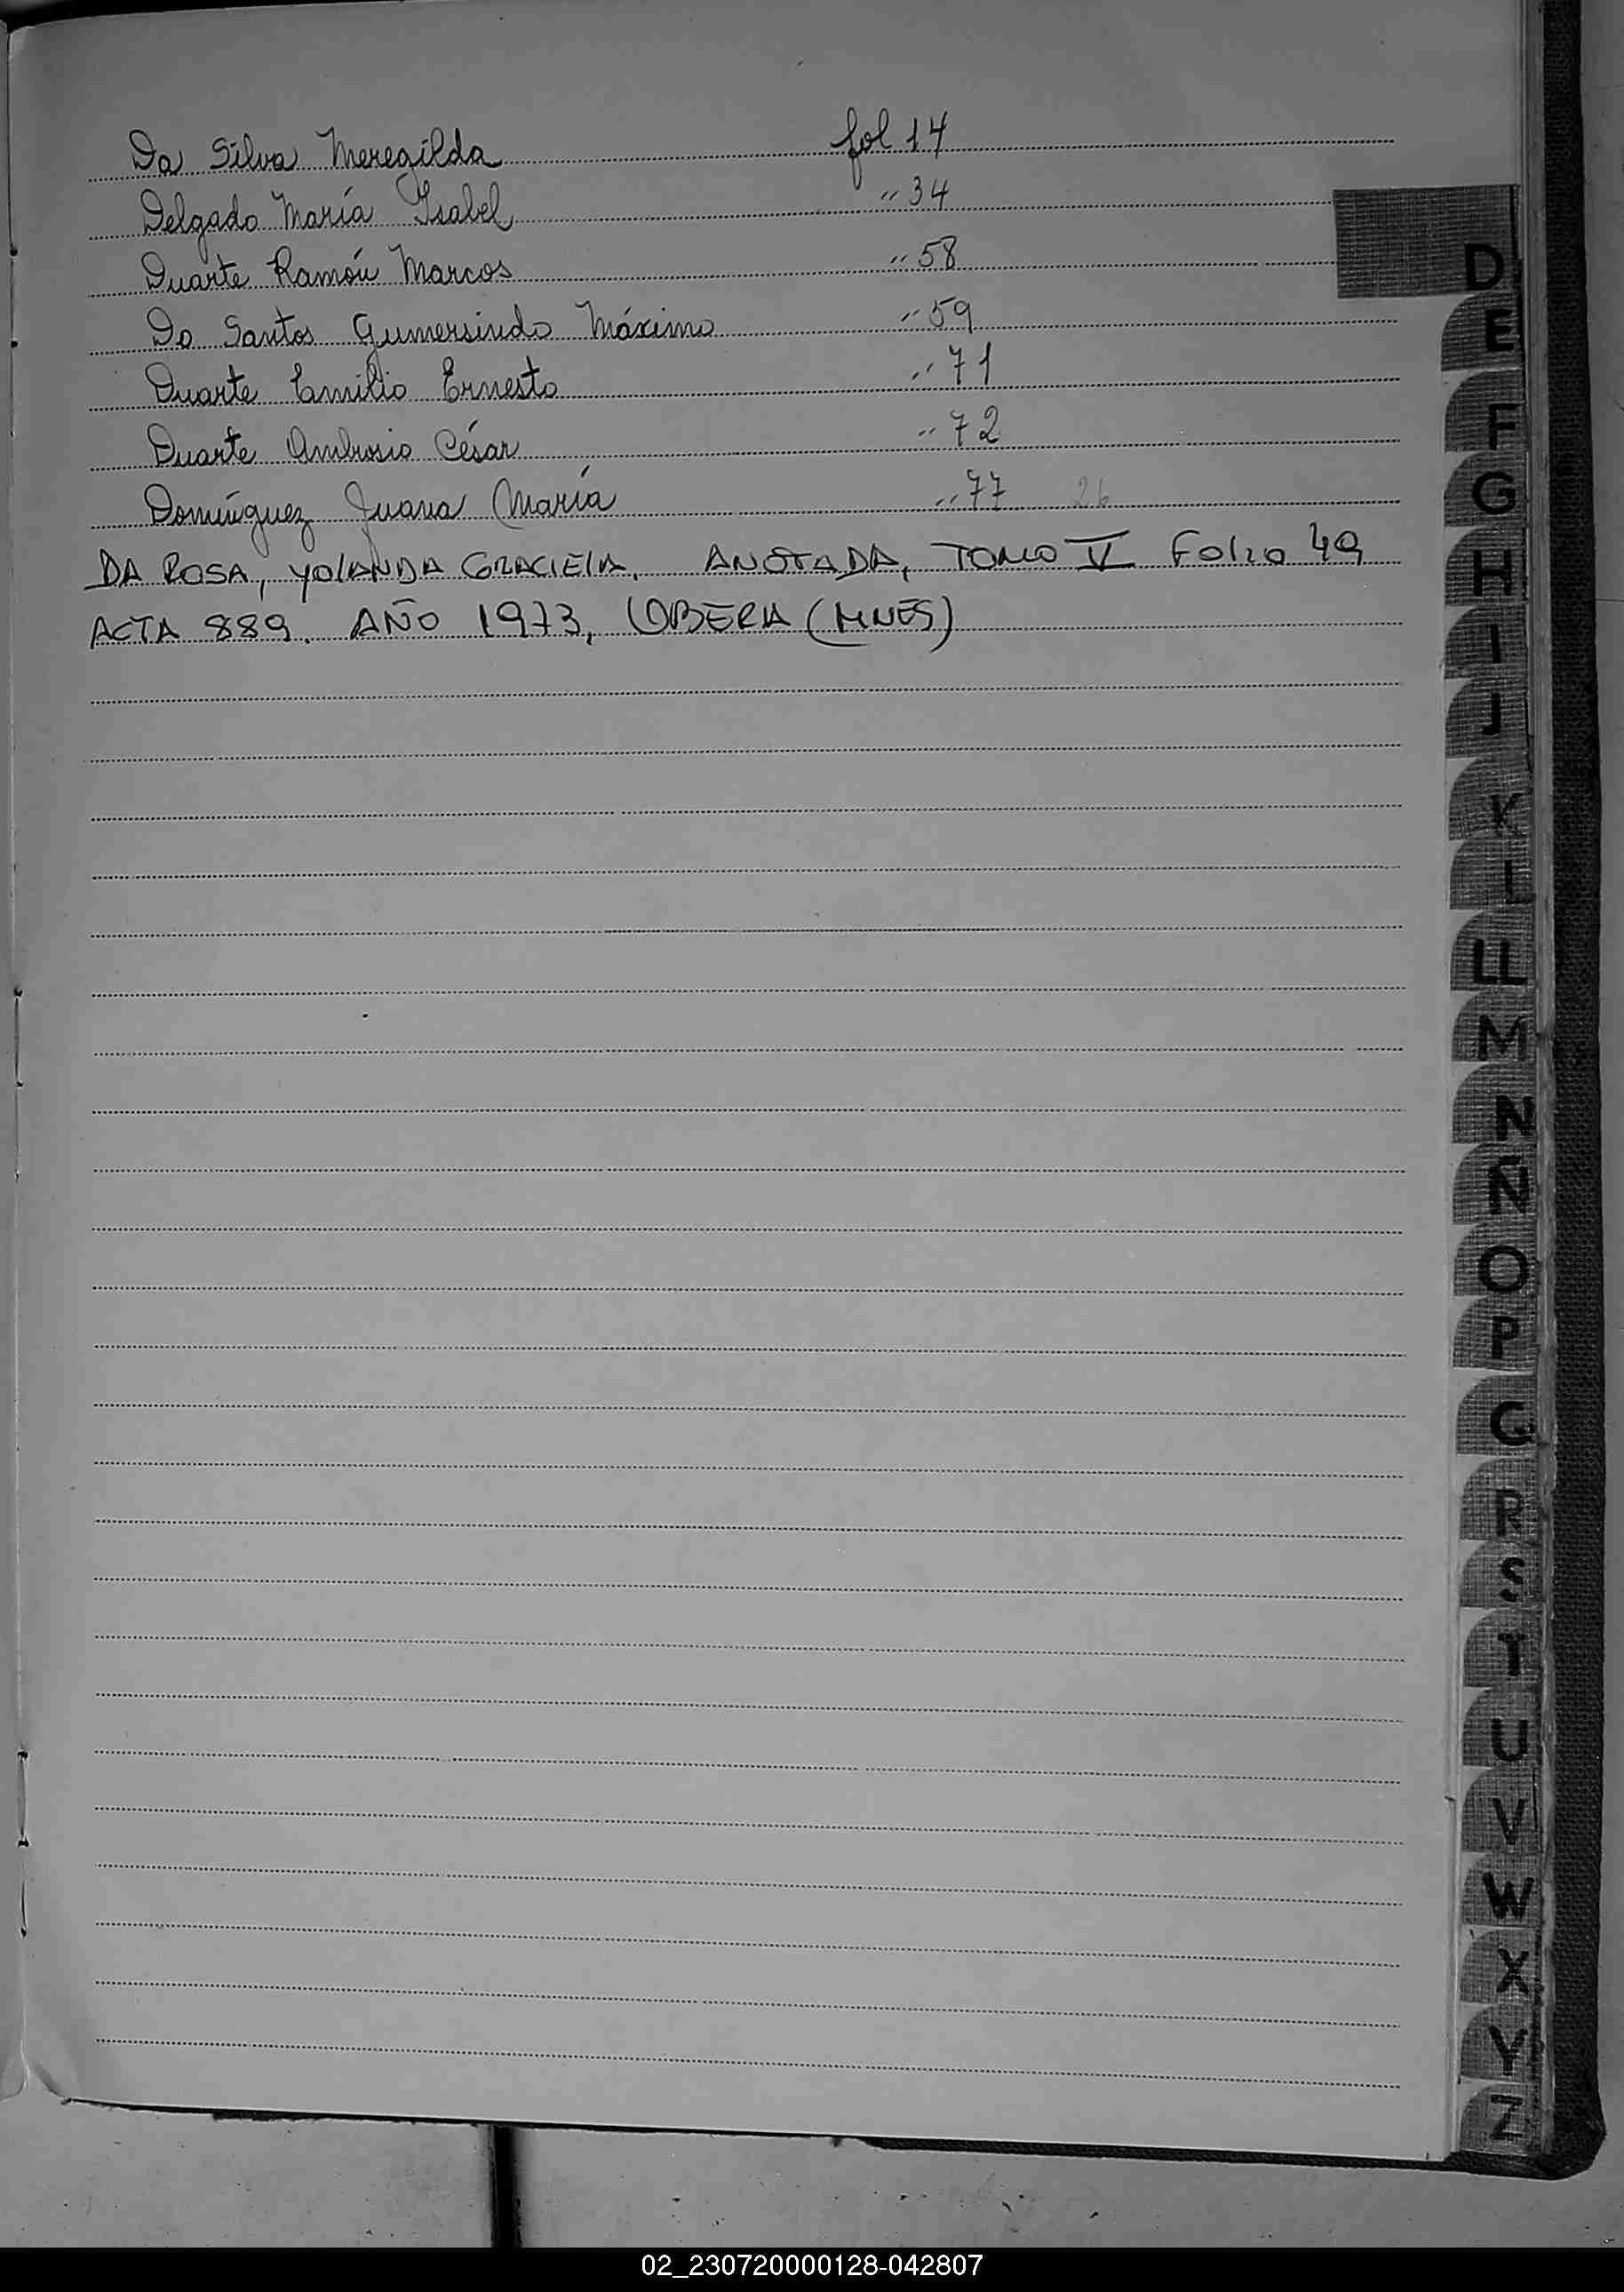 Da Silva Meregilda fol 14
Delgado María Isabel " 34
Duarte Ramón Marcos " 58
Do Santos Gumersindo Máximo " 59
Duarte Emilio Ernesto " 71
Duarte Ambrosio César " 72
Domínguez Juana María " 77 26
DA ROSA, YOLANDA GRACIELA. ANOTADA, TOMO V FOLIO 49
ACTA 889. AÑO 1973, OBERA (MNES)
D
E
F
G
H
I
J
K
L
LL
M
N
Ñ
O
P
Q
R
S
T
U
V
W
X
Y
Z
02_230720000128-042807